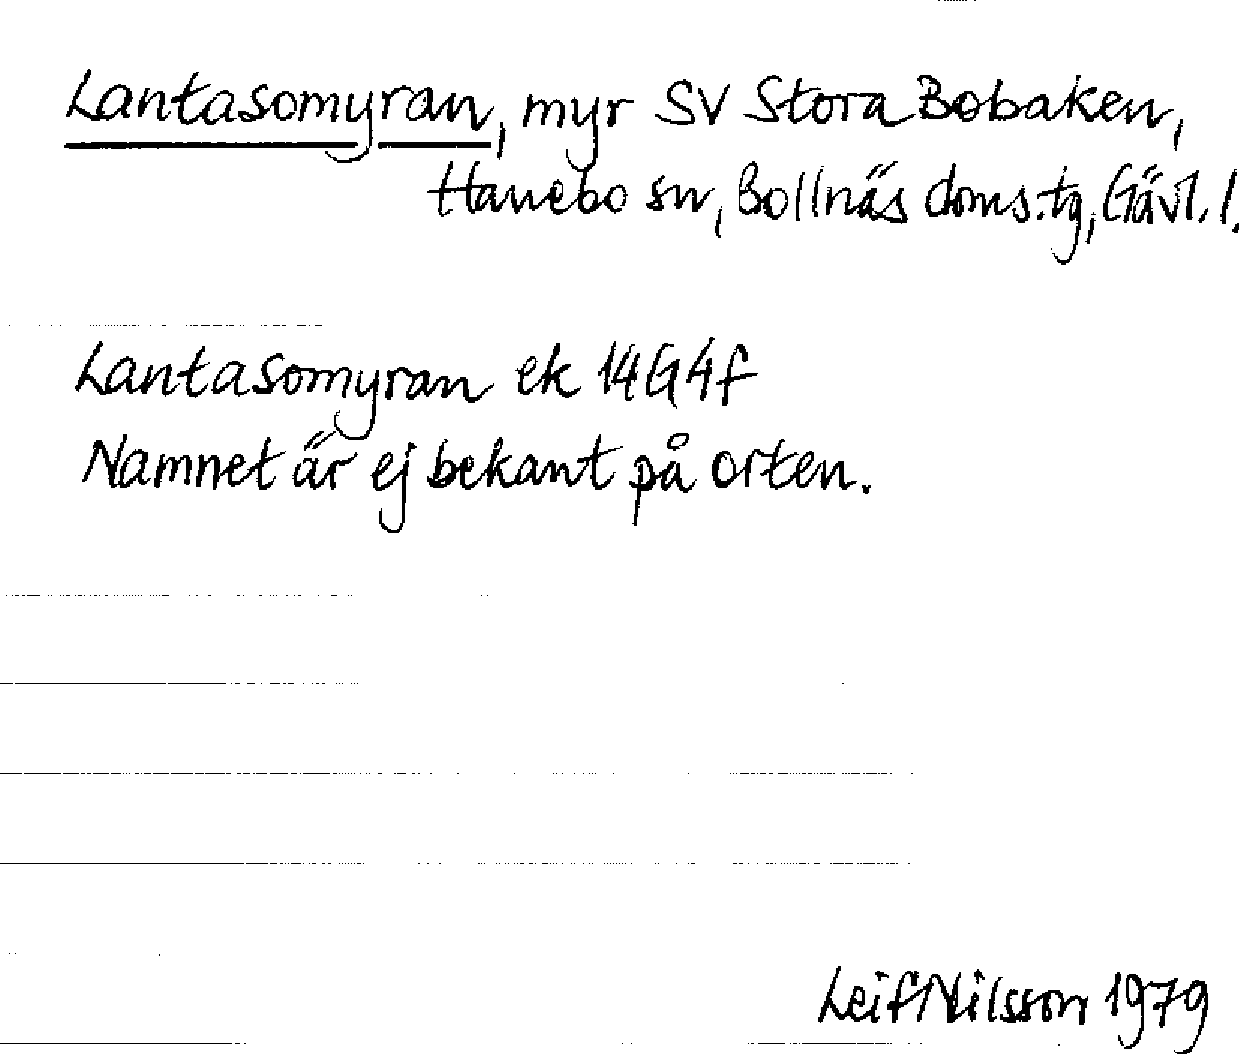 Lantasomyran, myr SV Stora Bobaken,
Hanebo sn, Bollnäs doms.tg, Gävl. l.
Lantasomyran ek 14G4f
Namnet är ej bekant på orten.
Leif Nilsson 1979